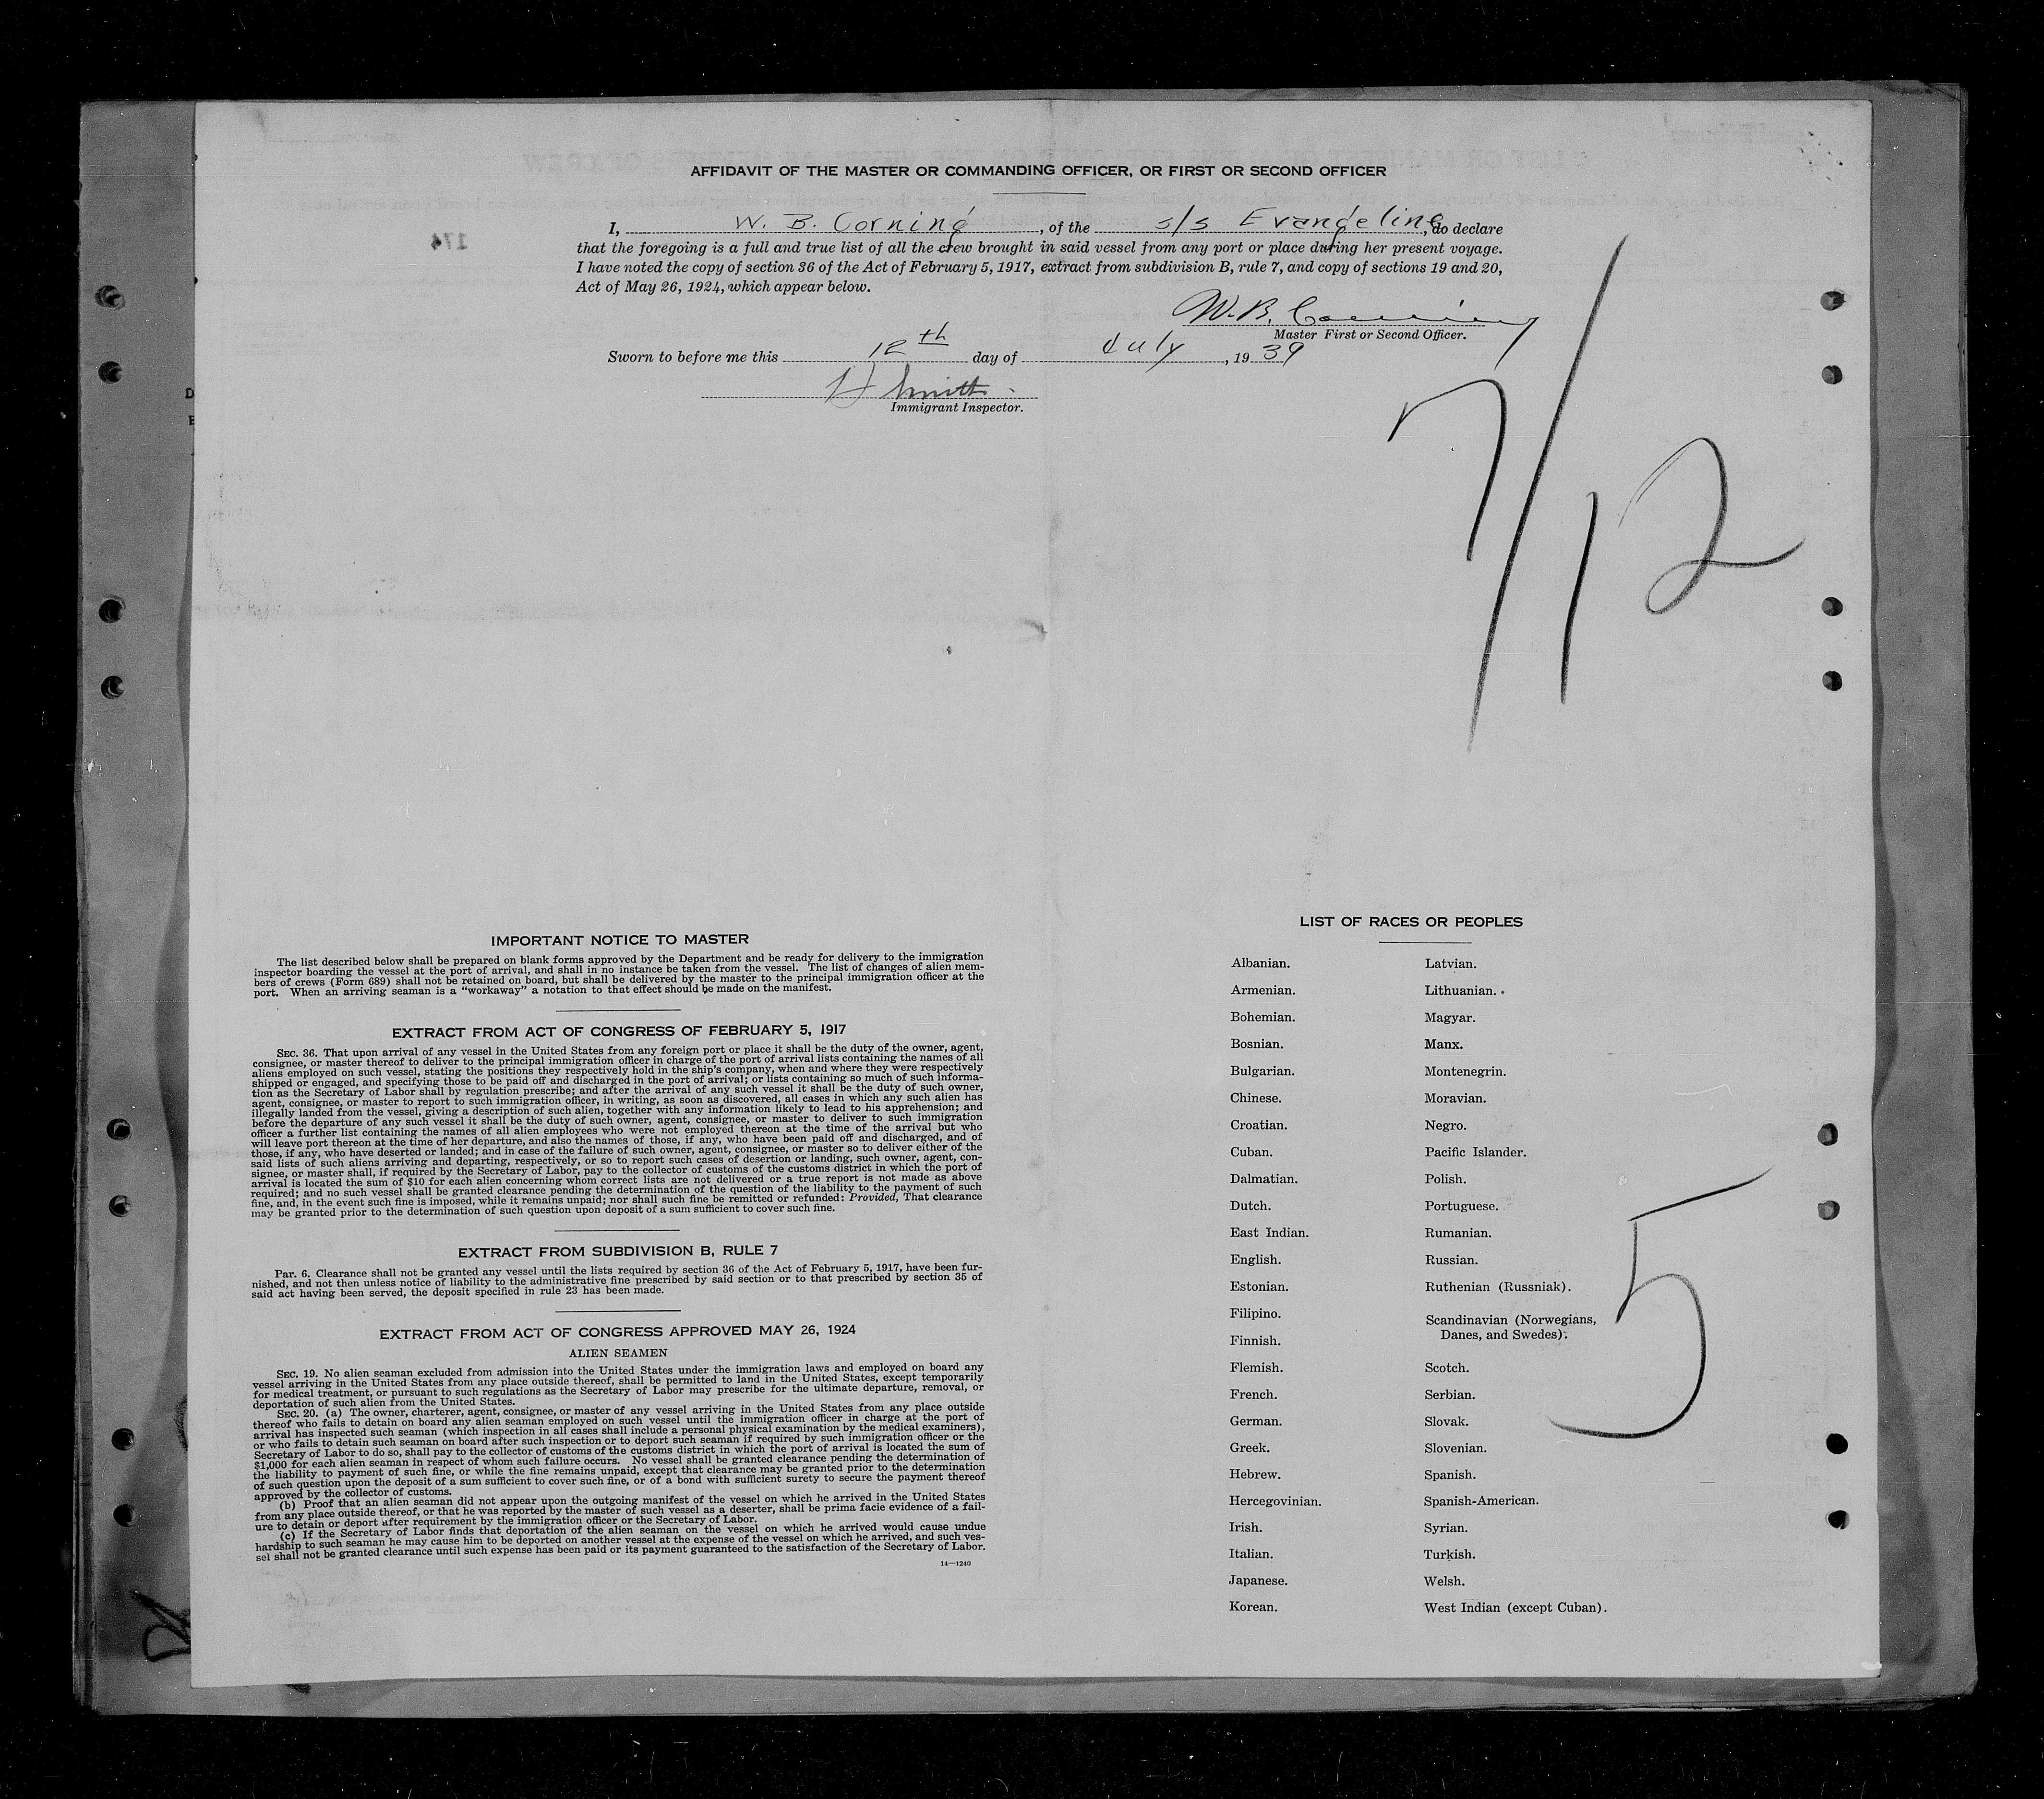 AFFIDAVIT OF THE MASTER OR COMMANDING OFFICER, OR FIRST OR SECOND OFFICER
I, W. B. Corning, of the s/s Evangeline, do declare
that the foregoing is a full and true list of all the crew brought in said vessel from any port or place during her present voyage.
I have noted the copy of section 36 of the Act of February 5, 1917, extract from subdivision B, rule 7, and copy of sections 19 and 20,
Act of May 26, 1924, which appear below.
W. B. Corning
Master First or Second Officer.
Sworn to before me this 12th day of July, 1939
H Smith
Immigrant Inspector.
7/12
174
IMPORTANT NOTICE TO MASTER
The list described below shall be prepared on blank forms approved by the Department and be ready for delivery to the immigration
inspector boarding the vessel at the port of arrival, and shall in no instance be taken from the vessel. The list of changes of alien mem-
bers of crews (Form 689) shall not be retained on board, but shall be delivered by the master to the principal immigration officer at the
port. When an arriving seaman is a "workaway" a notation to that effect should be made on the manifest.
EXTRACT FROM ACT OF CONGRESS OF FEBRUARY 5, 1917
SEC. 36. That upon arrival of any vessel in the United States from any foreign port or place it shall be the duty of the owner, agent,
consignee, or master thereof to deliver to the principal immigration officer in charge of the port of arrival lists containing the names of all
aliens employed on such vessel, stating the positions they respectively hold in the ship's company, when and where they were respectively
shipped or engaged, and specifying those to be paid off and discharged in the port of arrival; or lists containing so much of such informa-
tion as the Secretary of Labor shall by regulation prescribe; and after the arrival of any such vessel it shall be the duty of such owner,
agent, consignee, or master to report to such immigration officer, in writing, as soon as discovered, all cases in which any such alien has
illegally landed from the vessel, giving a description of such alien, together with any information likely to lead to his apprehension; and
before the departure of any such vessel it shall be the duty of such owner, agent, consignee, or master to deliver to such immigration
officer a further list containing the names of all alien employees who were not employed thereon at the time of the arrival but who
will leave port thereon at the time of her departure, and also the names of those, if any, who have been paid off and discharged, and of
those, if any, who have deserted or landed; and in case of the failure of such owner, agent, consignee, or master so to deliver either of the
said lists of such aliens arriving and departing, respectively, or so to report such cases of desertion or landing, such owner, agent, con-
signee, or master shall, if required by the Secretary of Labor, pay to the collector of customs of the customs district in which the port of
arrival is located the sum of $10 for each alien concerning whom correct lists are not delivered or a true report is not made as above
required; and no such vessel shall be granted clearance pending the determination of the question of the liability to the payment of such
fine, and, in the event such fine is imposed, while it remains unpaid; nor shall such fine be remitted or refunded: Provided, That clearance
may be granted prior to the determination of such question upon deposit of a sum sufficient to cover such fine.
EXTRACT FROM SUBDIVISION B, RULE 7
Par. 6. Clearance shall not be granted any vessel until the lists required by section 36 of the Act of February 5, 1917, have been fur-
nished, and not then unless notice of liability to the administrative fine prescribed by said section or to that prescribed by section 35 of
said act having been served, the deposit specified in rule 23 has been made.
EXTRACT FROM ACT OF CONGRESS APPROVED MAY 26, 1924
ALIEN SEAMEN
SEC. 19. No alien seaman excluded from admission into the United States under the immigration laws and employed on board any
vessel arriving in the United States from any place outside thereof, shall be permitted to land in the United States, except temporarily
for medical treatment, or pursuant to such regulations as the Secretary of Labor may prescribe for the ultimate departure, removal, or
deportation of such alien from the United States.
SEC. 20. (a) The owner, charterer, agent, consignee, or master of any vessel arriving in the United States from any place outside
thereof who fails to detain on board any alien seaman employed on such vessel until the immigration officer in charge at the port of
arrival has inspected such seaman (which inspection in all cases shall include a personal physical examination by the medical examiners),
or who fails to detain such seaman on board after such inspection or to deport such seaman if required by such immigration officer or the
Secretary of Labor to do so, shall pay to the collector of customs of the customs district in which the port of arrival is located the sum of
$1,000 for each alien seaman in respect of whom such failure occurs. No vessel shall be granted clearance pending the determination of
the liability to payment of such fine, or while the fine remains unpaid, except that clearance may be granted prior to the determination
of such question upon the deposit of a sum sufficient to cover such fine, or of a bond with sufficient surety to secure the payment thereof
approved by the collector of customs.
(b) Proof that an alien seaman did not appear upon the outgoing manifest of the vessel on which he arrived in the United States
from any place outside thereof, or that he was reported by the master of such vessel as a deserter, shall be prima facie evidence of a fail-
ure to detain or deport after requirement by the immigration officer or the Secretary of Labor.
(c) If the Secretary of Labor finds that deportation of the alien seaman on the vessel on which he arrived would cause undue
hardship to such seaman he may cause him to be deported on another vessel at the expense of the vessel on which he arrived, and such ves-
sel shall not be granted clearance until such expense has been paid or its payment guaranteed to the satisfaction of the Secretary of Labor.
14—1240
LIST OF RACES OR PEOPLES
Albanian.
Armenian.
Bohemian.
Bosnian.
Bulgarian.
Chinese.
Croatian.
Cuban.
Dalmatian.
Dutch.
East Indian.
English.
Estonian.
Filipino.
Finnish.
Flemish.
French.
German.
Greek.
Hebrew.
Hercegovinian.
Irish.
Italian.
Japanese.
Korean.
Latvian.
Lithuanian.
Magyar.
Manx.
Montenegrin.
Moravian.
Negro.
Pacific Islander.
Polish.
Portuguese.
Rumanian.
Russian.
Ruthenian (Russniak).
Scandinavian (Norwegians,
Danes, and Swedes).
Scotch.
Serbian.
Slovak.
Slovenian.
Spanish.
Spanish-American.
Syrian.
Turkish.
Welsh.
West Indian (except Cuban).
5